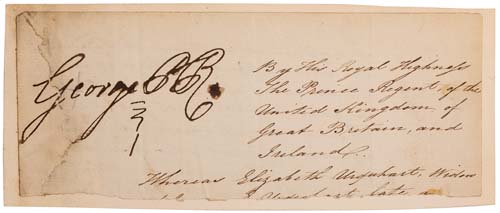 George P R
By His Royal Highness
The Prince Regent of the
United Kingdom of
Great Britain, and
Ireland.
Whereas Elizabeth Urquhart, Widow
late a